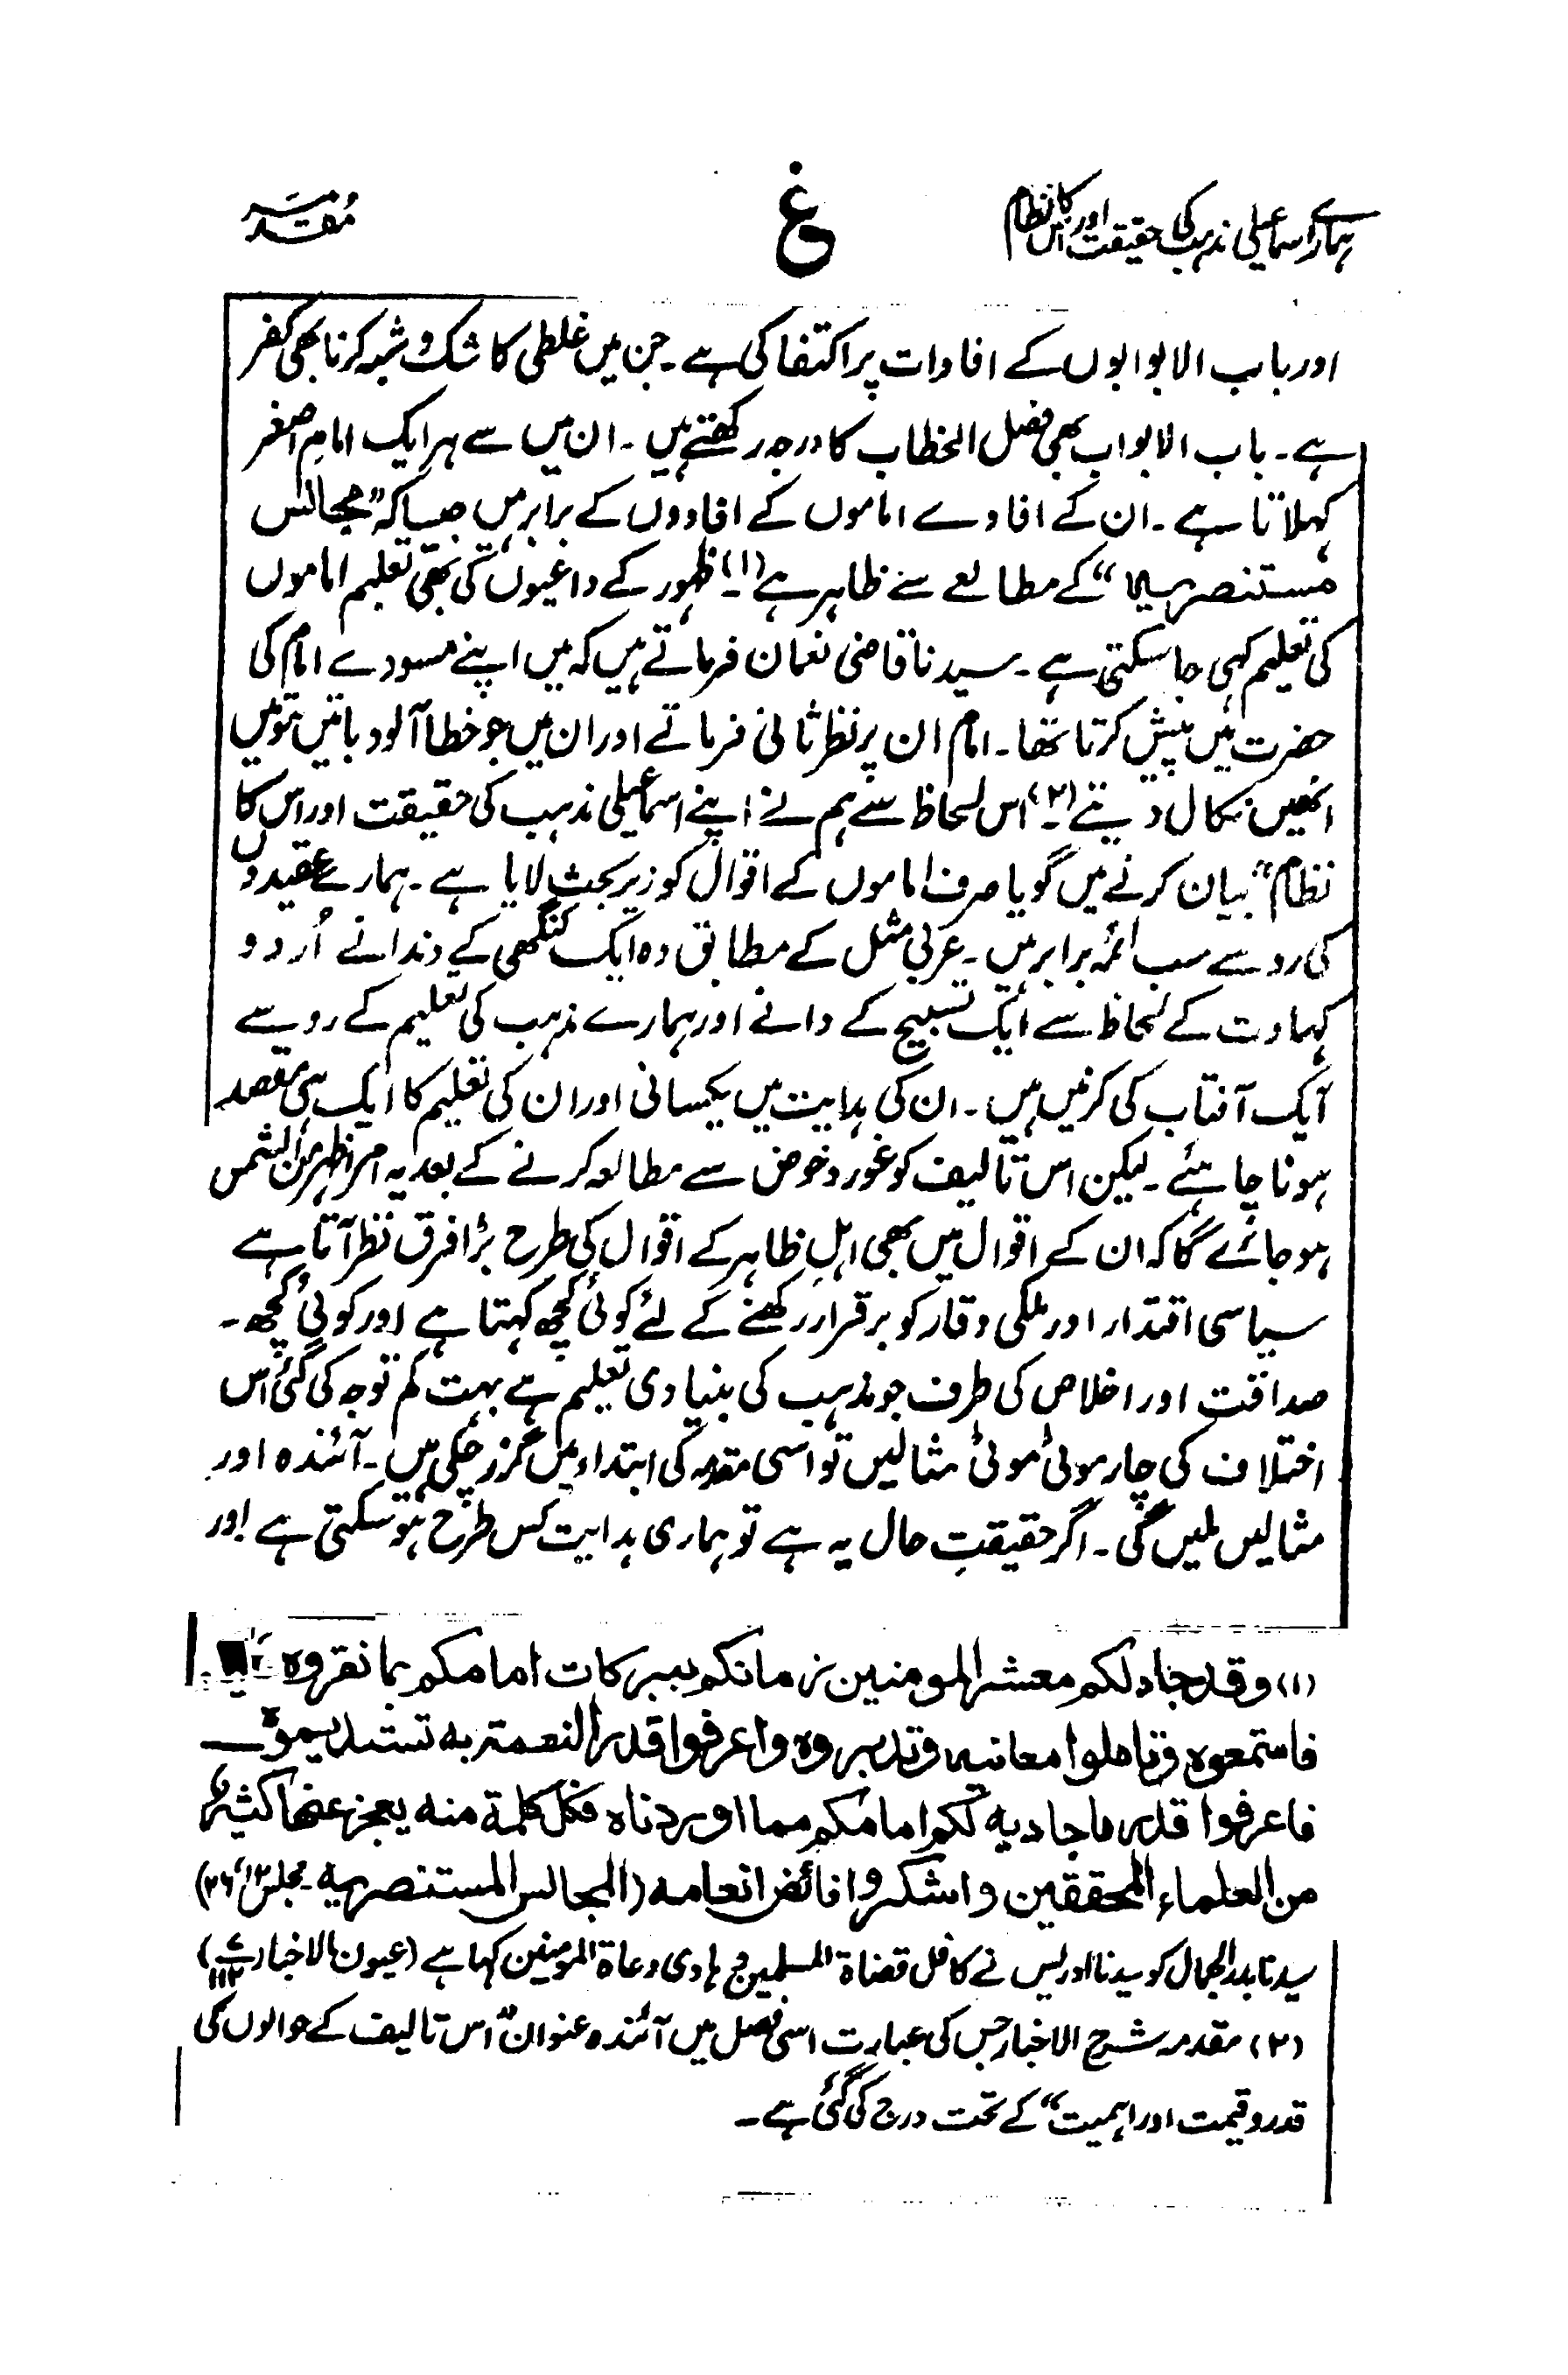 ہمارے اسماعیلی مذہب کی حقیقت اور اس کا نظام
غ
مُقدمہ
اور باب الابوابوں کے افادات پر اکتفا کی ہے ۔ جن میں غلطی کا شک و شبہ کرنا بھی کفر
ہے ۔ باب الابواب بھی فصل الخطاب کا درجہ رکھتے ہیں ۔ ان میں سے ہر ایک امامِ اصغر
کہلاتا ہے ۔ ان کے افادے اماموں کے افادوں کے برابر ہیں جیسا کہ "مجالس
مستنصریہ" کے مطالعے سے ظاہر ہے (۱)۔ ظہور کے داعیوں کی بھی تعلیم اماموں
کی تعلیم کہی جا سکتی ہے ۔ سیدنا قاضی نعمان فرماتے ہیں کہ میں اپنے مسودے امام کی
حضرت میں پیش کرتا تھا ۔ امام ان پر نظر ثانی فرماتے اور ان میں جو خطا آلود باتیں ہوتیں
انھیں نکال دیتے (۲)۔ اس لحاظ سے ہم نے اپنے اسماعیلی مذہب کی حقیقت اور اس کا
نظام" بیان کرنے میں گویا صرف اماموں کے اقوال کو زیر بحث لایا ہے ۔ ہمارے عقیدوں
کی رو سے سب ائمہ برابر ہیں ۔ عربی مثل کے مطابق وہ ایک کنگھی کے دندانے اُردو
کہاوت کے لحاظ سے ایک تسبیح کے دانے اور ہمارے مذہب کی تعلیم کے رو سے
ایک آفتاب کی کرنیں ہیں ۔ ان کی ہدایت میں یکسانی اور ان کی تعلیم کا ایک ہی مقصد
ہونا چاہئے ۔ لیکن اس تالیف کو غور و خوض سے مطالعہ کرنے کے بعد یہ امر اظہر من الشمس
ہو جائے گا کہ ان کے اقوال میں بھی اہلِ ظاہر کے اقوال کی طرح بڑا فرق نظر آتا ہے
سیاسی اقتدار اور ملکی وقار کو برقرار رکھنے کے لئے کوئی کچھ کہتا ہے اور کوئی کچھ ۔
صداقت اور اخلاص کی طرف جو مذہب کی بنیادی تعلیم ہے بہت کم توجہ کی گئی اس
اختلاف کی چار موٹی موٹی مثالیں تو اسی مقدمہ کی ابتداء میں گزر چکی ہیں ۔ آئندہ اور
مثالیں ملیں گی ۔ اگر حقیقتِ حال یہ ہے تو ہماری ہدایت کس طرح ہو سکتی ہے اور
(۱) وقد جاد لکم معشر المومنین زمانکم ببرکات امامکم بما نقروہ
فاستمعوہ وتاملوا معانیہ وتدبروہ واعرفوا قدر النعمة بہ تستدیموہ
فاعرفوا قدر ما جاد بہ لکم امامکم مما اوردناہ فکل کلمة منہ یعجز عنھا کثیر
من العلماء المحققین واشکروا فائض انعامہ (المجالس المستنصریہ ۔ مجلس ۱۳، ۲۶)
سیدنا بدر الجمال کو سیدنا ادریس نے کافل قضاة المسلمین و ہادی دعاة المومنین کہا ہے (عیون الاخبار ۷/۱۱۲)
(۲) مقدمہ شرح الاخبار جس کی عبارت اسی فصل میں آئندہ عنوان "اس تالیف کے حوالوں کی
قدر و قیمت اور اہمیت" کے تحت درج کی گئی ہے ۔